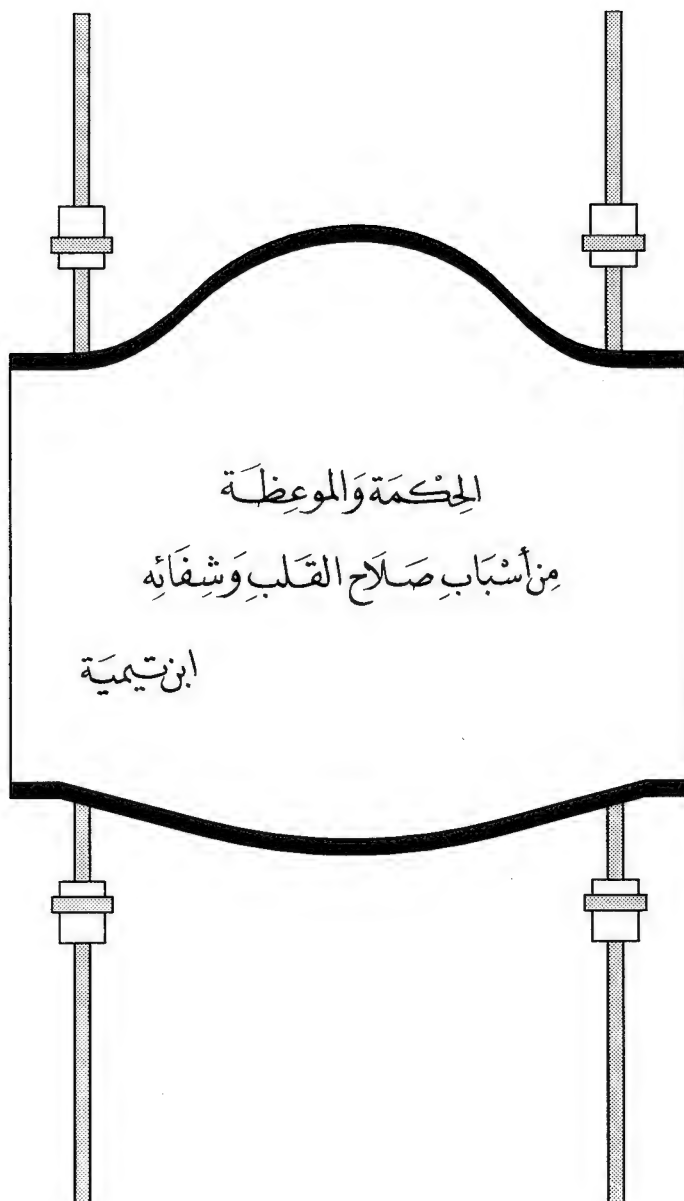 الحِكْمَة وَالموعِظَة
مِن أَسْبَابِ صَلَاح القَلبِ وَشِفَائِه
ابن تيميَة